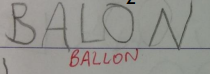 BALON
BALLON